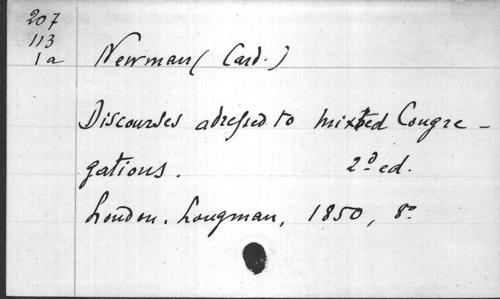 207
113
1a
Newman (Card.)
Discourses adressed to mixted Congre-
gations. 2d ed.
London. Longman, 1850, 8°